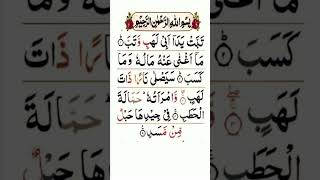 بِسْمِ اللهِ الرَّحْمٰنِ الرَّحِيْمِ
تَبَّتْ يَدَآ اَبِىْ لَهَبٍ وَّتَبَّ ۞
مَآ اَغْنٰى عَنْهُ مَالُهٗ وَمَا
كَسَبَ ۞ سَيَصْلٰى نَارًا ذَاتَ
لَهَبٍ ۞ وَّامْرَاَتُهٗ ؕ حَمَّالَةَ
الْحَطَبِ ۞ فِىْ جِيْدِهَا حَبْلٌ
مِّنْ مَّسَدٍ ۞